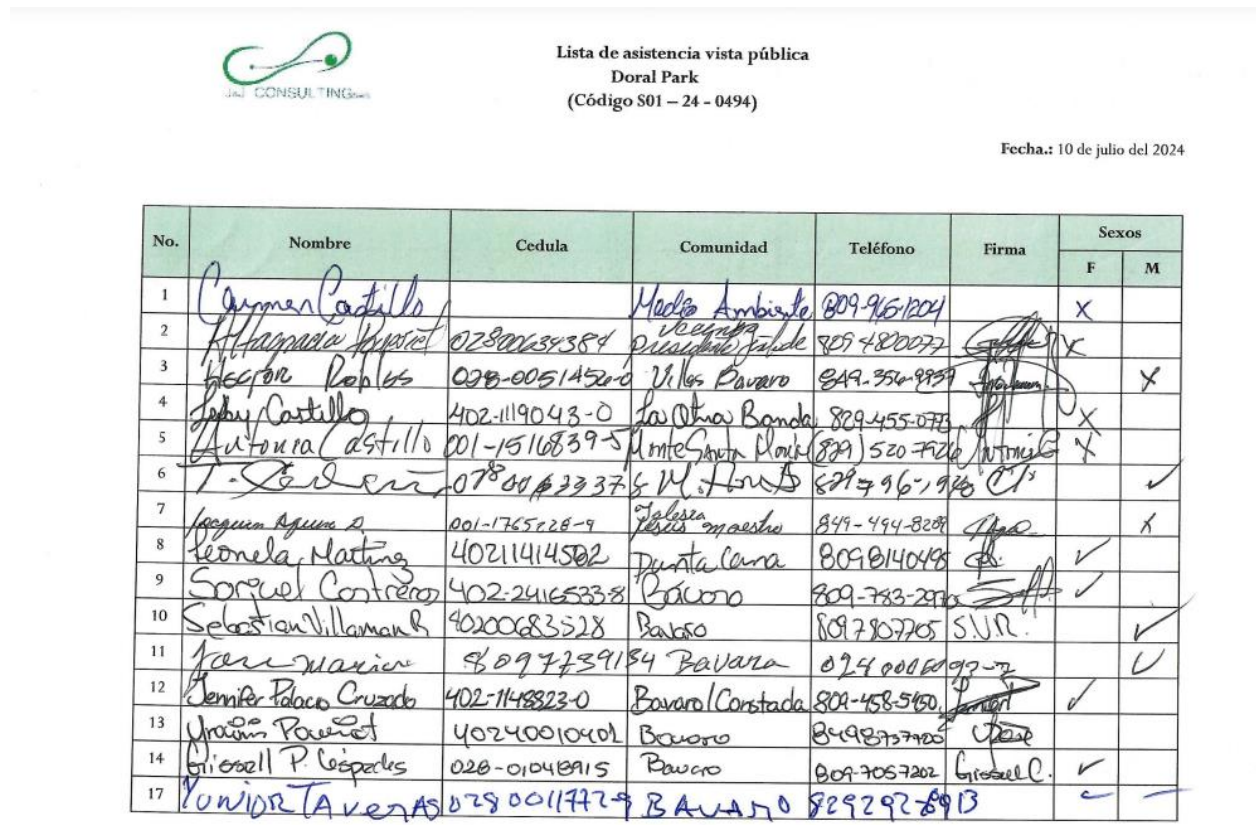 J&J CONSULTING
Lista de asistencia vista pública
Doral Park
(Código S01 – 24 - 0494)
Fecha.: 10 de julio del 2024
No. Nombre Cedula Comunidad Teléfono Firma Sexos
F M
1 Carmen Castillo Medio Ambiente 809-965-1204 X
2 Altagracia 02800634384 presidente 809 4800077 X
3 Hector Robles 028-0051456-0 Villas Bavaro 849-356-9937 X
4 Castillo 402-1119043-0 La Otra Banda 829-455-0773 X
5 Antonia Castillo 001-1516839-5 Monte Santa María (829) 520 7926 Antonia C X
6 T. ✓
7 Joaquin 001-1765228-9 Iglesia Jesus maestro 849-494-8209 X
8 Leonela Martinez 40211414502 Punta Cana 8098140498 ✓
9 Contreras 402-2416533-8 Bávaro 809-783-2970 ✓
10 Sebastian Villaman R 40200683528 Bavaro 8097807705 S.V.R. ✓
11 Jose 8097739134 Bavaro ✓
12 Jennifer Polaco Cruzado 402-1148823-0 Bavaro/Constada 809-458-5450 ✓
13 40240010402 Bavaro
14 Grissell P. Céspedes 028-01048915 Bavaro 809-7057202 Grissel C. ✓
17 YUNIOR TAVERAS 0280011772-9 BAVARO